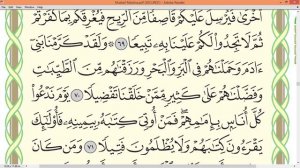 أُخْرَىٰ فَيُرْسِلَ عَلَيْكُمْ قَاصِفًا مِّنَ ٱلرِّيحِ فَيُغْرِقَكُم بِمَا كَفَرْتُمْ
ثُمَّ لَا تَجِدُوا۟ لَكُمْ عَلَيْنَا بِهِۦ تَبِيعًا ٦٩ وَلَقَدْ كَرَّمْنَا بَنِىٓ
ءَادَمَ وَحَمَلْنَٰهُمْ فِى ٱلْبَرِّ وَٱلْبَحْرِ وَرَزَقْنَٰهُم مِّنَ ٱلطَّيِّبَٰتِ
وَفَضَّلْنَٰهُمْ عَلَىٰ كَثِيرٍ مِّمَّنْ خَلَقْنَا تَفْضِيلًا ٧٠ يَوْمَ نَدْعُوا۟
كُلَّ أُنَاسٍۭ بِإِمَٰمِهِمْ فَمَنْ أُوتِىَ كِتَٰبَهُۥ بِيَمِينِهِۦ فَأُو۟لَٰٓئِكَ
يَقْرَءُونَ كِتَٰبَهُمْ وَلَا يُظْلَمُونَ فَتِيلًا ٧١ وَمَن كَانَ